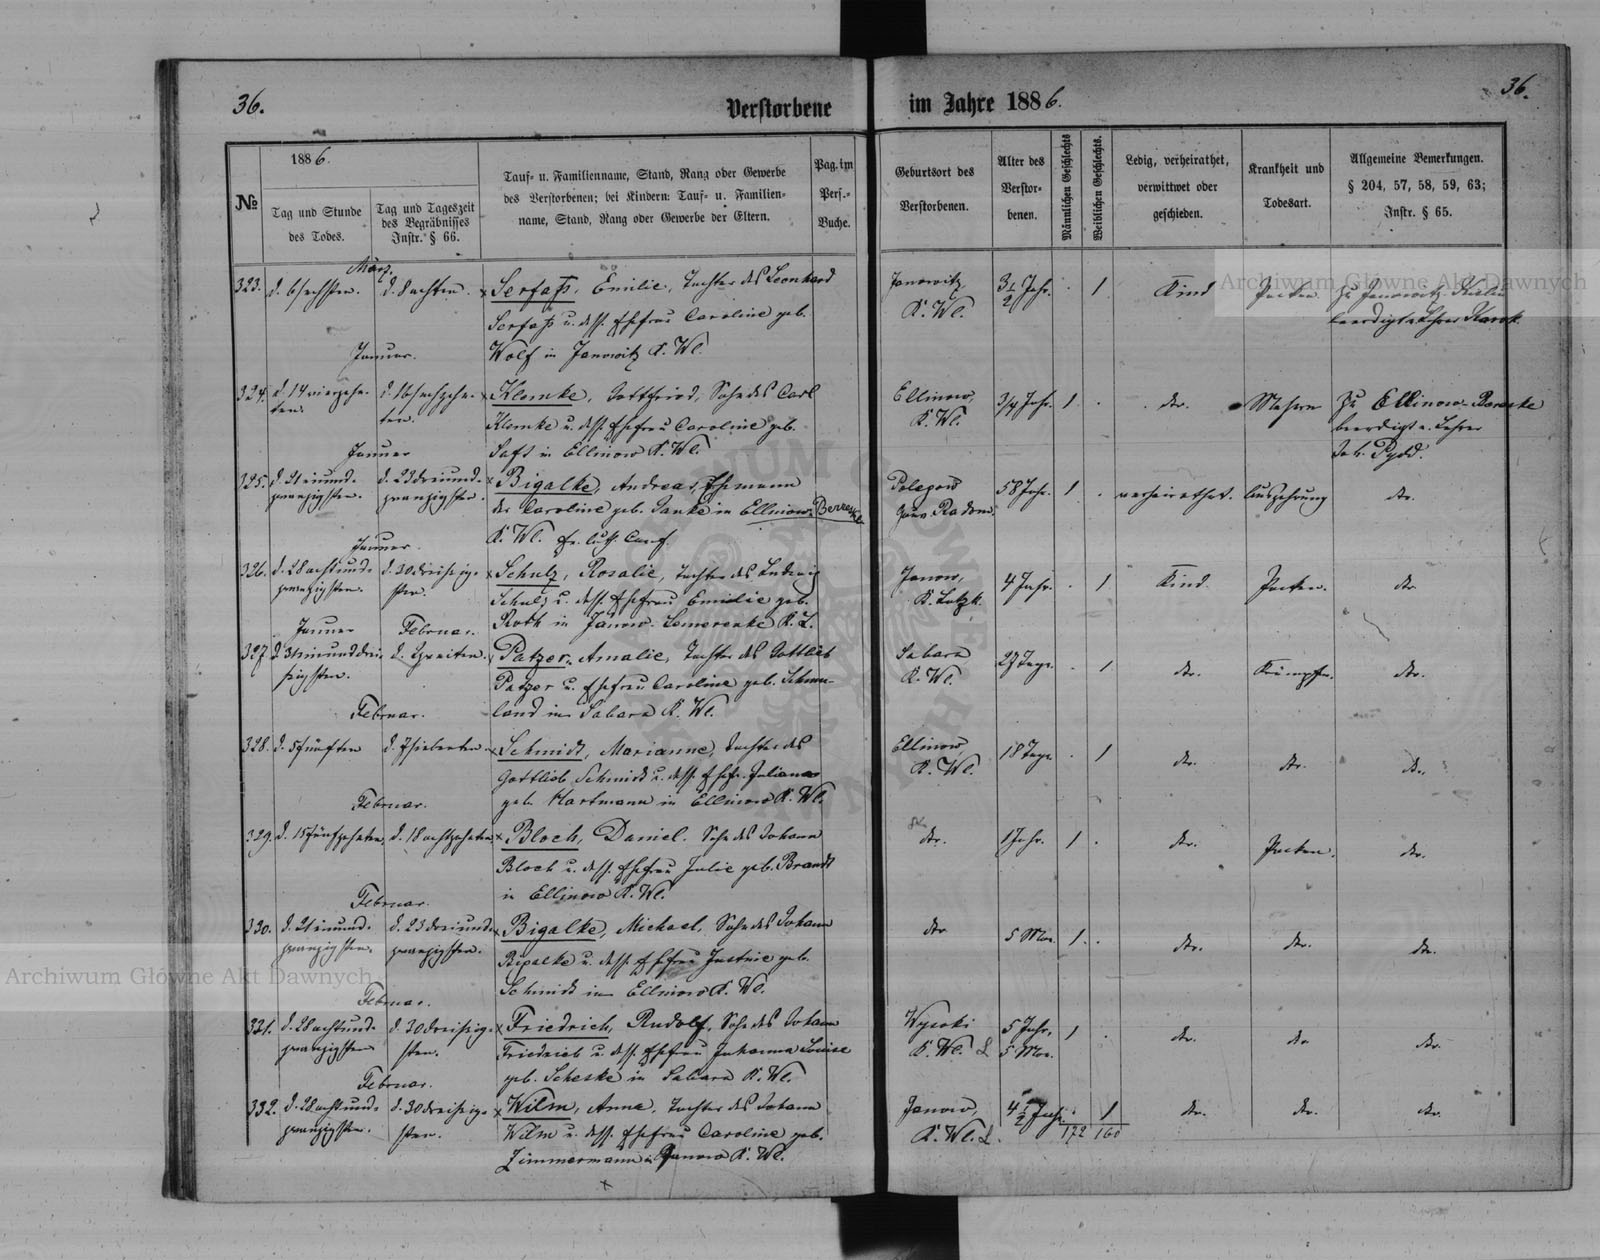 36.
Verstorbene
im Jahre 1886.
36.
№
1886.
Tag und Stunde
des Todes.
Tag und Tageszeit
des Begräbnisses
Instr. § 66.
Tauf- u. Familienname, Stand, Rang oder Gewerbe
des Verstorbenen; bei Kindern: Tauf- u. Familien-
name, Stand, Rang oder Gewerbe der Eltern.
Pag. im
Pers.-
Buche.
Geburtsort des
Verstorbenen.
Alter des
Verstor-
benen.
Männlichen Geschlechts
Weiblichen Geschlechts.
Ledig, verheirathet,
verwittwet oder
geschieden.
Krankheit und
Todesart.
Allgemeine Bemerkungen.
§ 204, 57, 58, 59, 63;
Instr. § 65.
März.
323. d. 6 sechsten. d. 8 achten. Serfaß, Emilie, Tochter des Leonhard
Serfaß u. dess. Ehefrau Caroline geb.
Wolf in Janowitz K. Wl.
Janowitz
K. Wl.
3 1/2 Jahr. 1 Kind Pocken
Januar.
324. d. 14 vierzehn-
ten.
d. 16 sechzehn-
ten.
Klomke, Gottfried, Sohn des Carl
Klomke u. dess. Ehefrau Caroline geb.
Saft in Ellinow K. Wl.
Ellinow,
K. Wl.
3/4 Jahr. 1 dto. Masern
zu Ellinow
beerdigt v. Lehrer
Joh. Pydd.
Januar
325. d. 21 einund-
zwanzigsten.
d. 23 dreiund-
zwanzigsten.
Bigalke, Andreas, Ehemann
der Caroline geb. Janke in Ellinow
K. Wl. ev. luth. Conf.
Radom.
58 Jahr. 1 verheirathet. Auszehrung dto.
Januar.
326. d. 28 achtund-
zwanzigsten.
d. 30 dreißig-
sten.
Schulz, Rosalie, Tochter des Ludwig
Schulz u. dess. Ehefrau Emilie geb.
Roth in Janow K. L.
Janow,
K. Lutzk.
4 Jahr. 1 Kind. Pocken. dto
Januar Februar.
327 d. 31 einunddrei-
ßigsten.
d. 2 zweiten.
Patzer, Amalie, Tochter des Gottlieb
Patzer u. Ehefrau Caroline geb.
land in Sabara K. Wl.
Sabara
K. Wl.
27 Tage. 1 dto. Krämpfe. dto.
Februar.
328. d. 5 fünften d. 7 siebenten. Schmidt, Marianne, Tochter des
Gottlieb Schmidt u. dess. Ehefr. Juliana
geb. Hartmann in Ellinow K. Wl.
Ellinow
K. Wl.
18 Tage 1 dto. dto. dto.
Februar.
329. d. 15 fünfzehnten. d. 18 achtzehnten. Bloch, Daniel. Sohn des Johann
Bloch u. dess. Ehefrau Julie geb. Brandt
in Ellinow K. Wl.
dto. 1 Jahr. 1 dto. Pocken. dto.
Februar.
330. d. 21 einund-
zwanzigsten.
d. 23 dreiund-
zwanzigsten.
Bigalke, Michael, Sohn des Johann
Bigalke u. dess. Ehefrau Justine geb.
Schmidt in Ellinow K. Wl.
dto 5 Mon. 1 dto. dto. dto.
Februar.
331. d. 28 achtund-
zwanzigsten
d. 30 dreißig-
sten.
Friedrich, Rudolf, Sohn des Johann
Friedrich u. dess. Ehefrau Johanna Louise
geb. Scheske in Sabara K. Wl.
Wysoki
K. Wl.
5 Jahr.
5 Mon.
1 dto. dto dto.
Februar.
332. d. 28 achtund-
zwanzigsten.
d. 30 dreißig-
sten.
Wilm, Anna, Tochter des Johann
Wilm u. dess. Ehefrau Caroline geb.
Zimmermann in Janow K. Wl.
Janow,
K. Wl.
4 1/2 Jahr 1 dto. dto. dto.
172 160
Archiwum Główne Akt Dawnych
Archiwum Główne Akt Dawnych